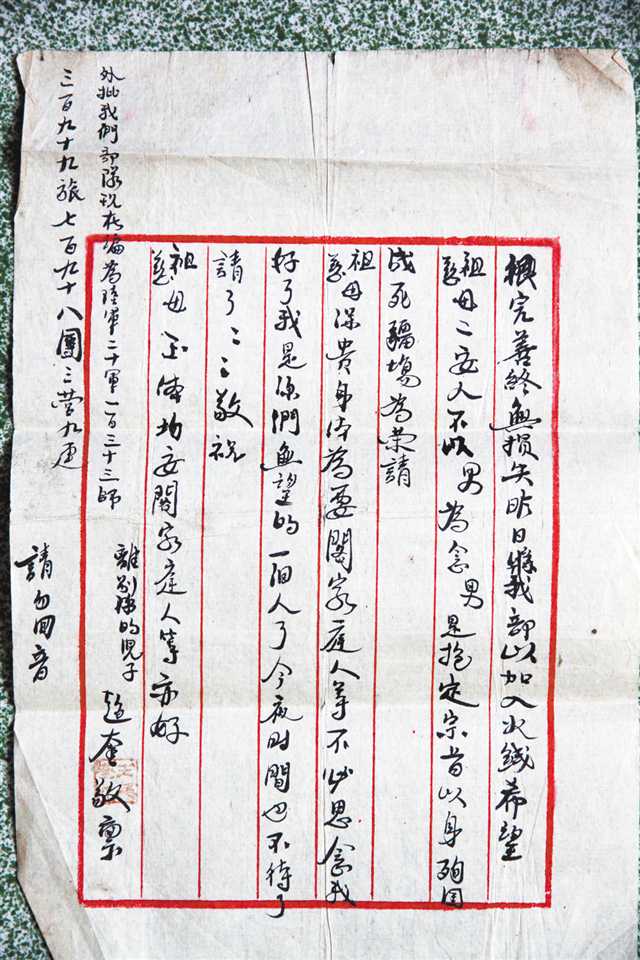 概完善終無損失昨日將我部以加入火线希望
祖慈母二安人不以男為念男是抱定宗旨以身殉国
战死疆場為荣請
祖慈母保貴身体為要閤家庭人等不必思念我
好了我是你們無望的一個人了今夜时間也不待了
請了敬祝
祖慈母玉体均安閤家庭人等亦好
離別的兒子趙奎敬禀
外批我們部隊现在编為陸軍二十軍一百三十三師
三百九十九旅七百九十八團三营九连
請勿回音